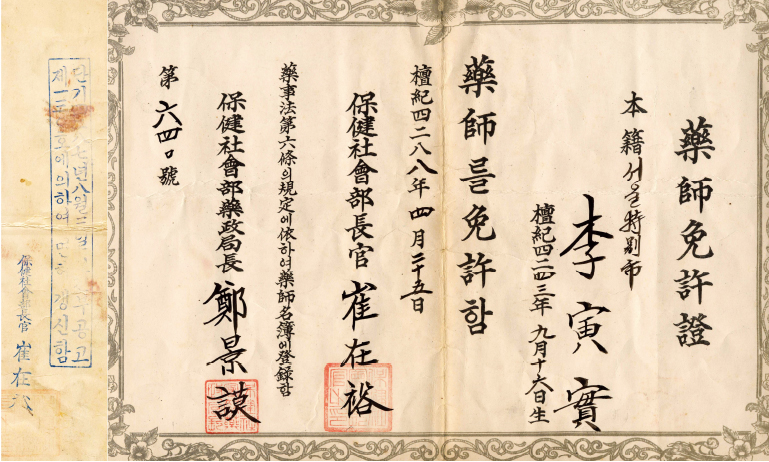 藥師免許證
本籍 서울特別市
李寅實
檀紀四二四三年 九月十六日生
藥師를免許함
檀紀四二八八年 四月二十五日
保健社會部長官 崔在裕
藥事法第六條의規定에依하여藥師名簿에登錄함
保健社會部藥政局長 鄭景謨
第 六四〇 號
단기 七년八월 공고
제一 호에의하여 갱신함
保健社會部長官 崔在